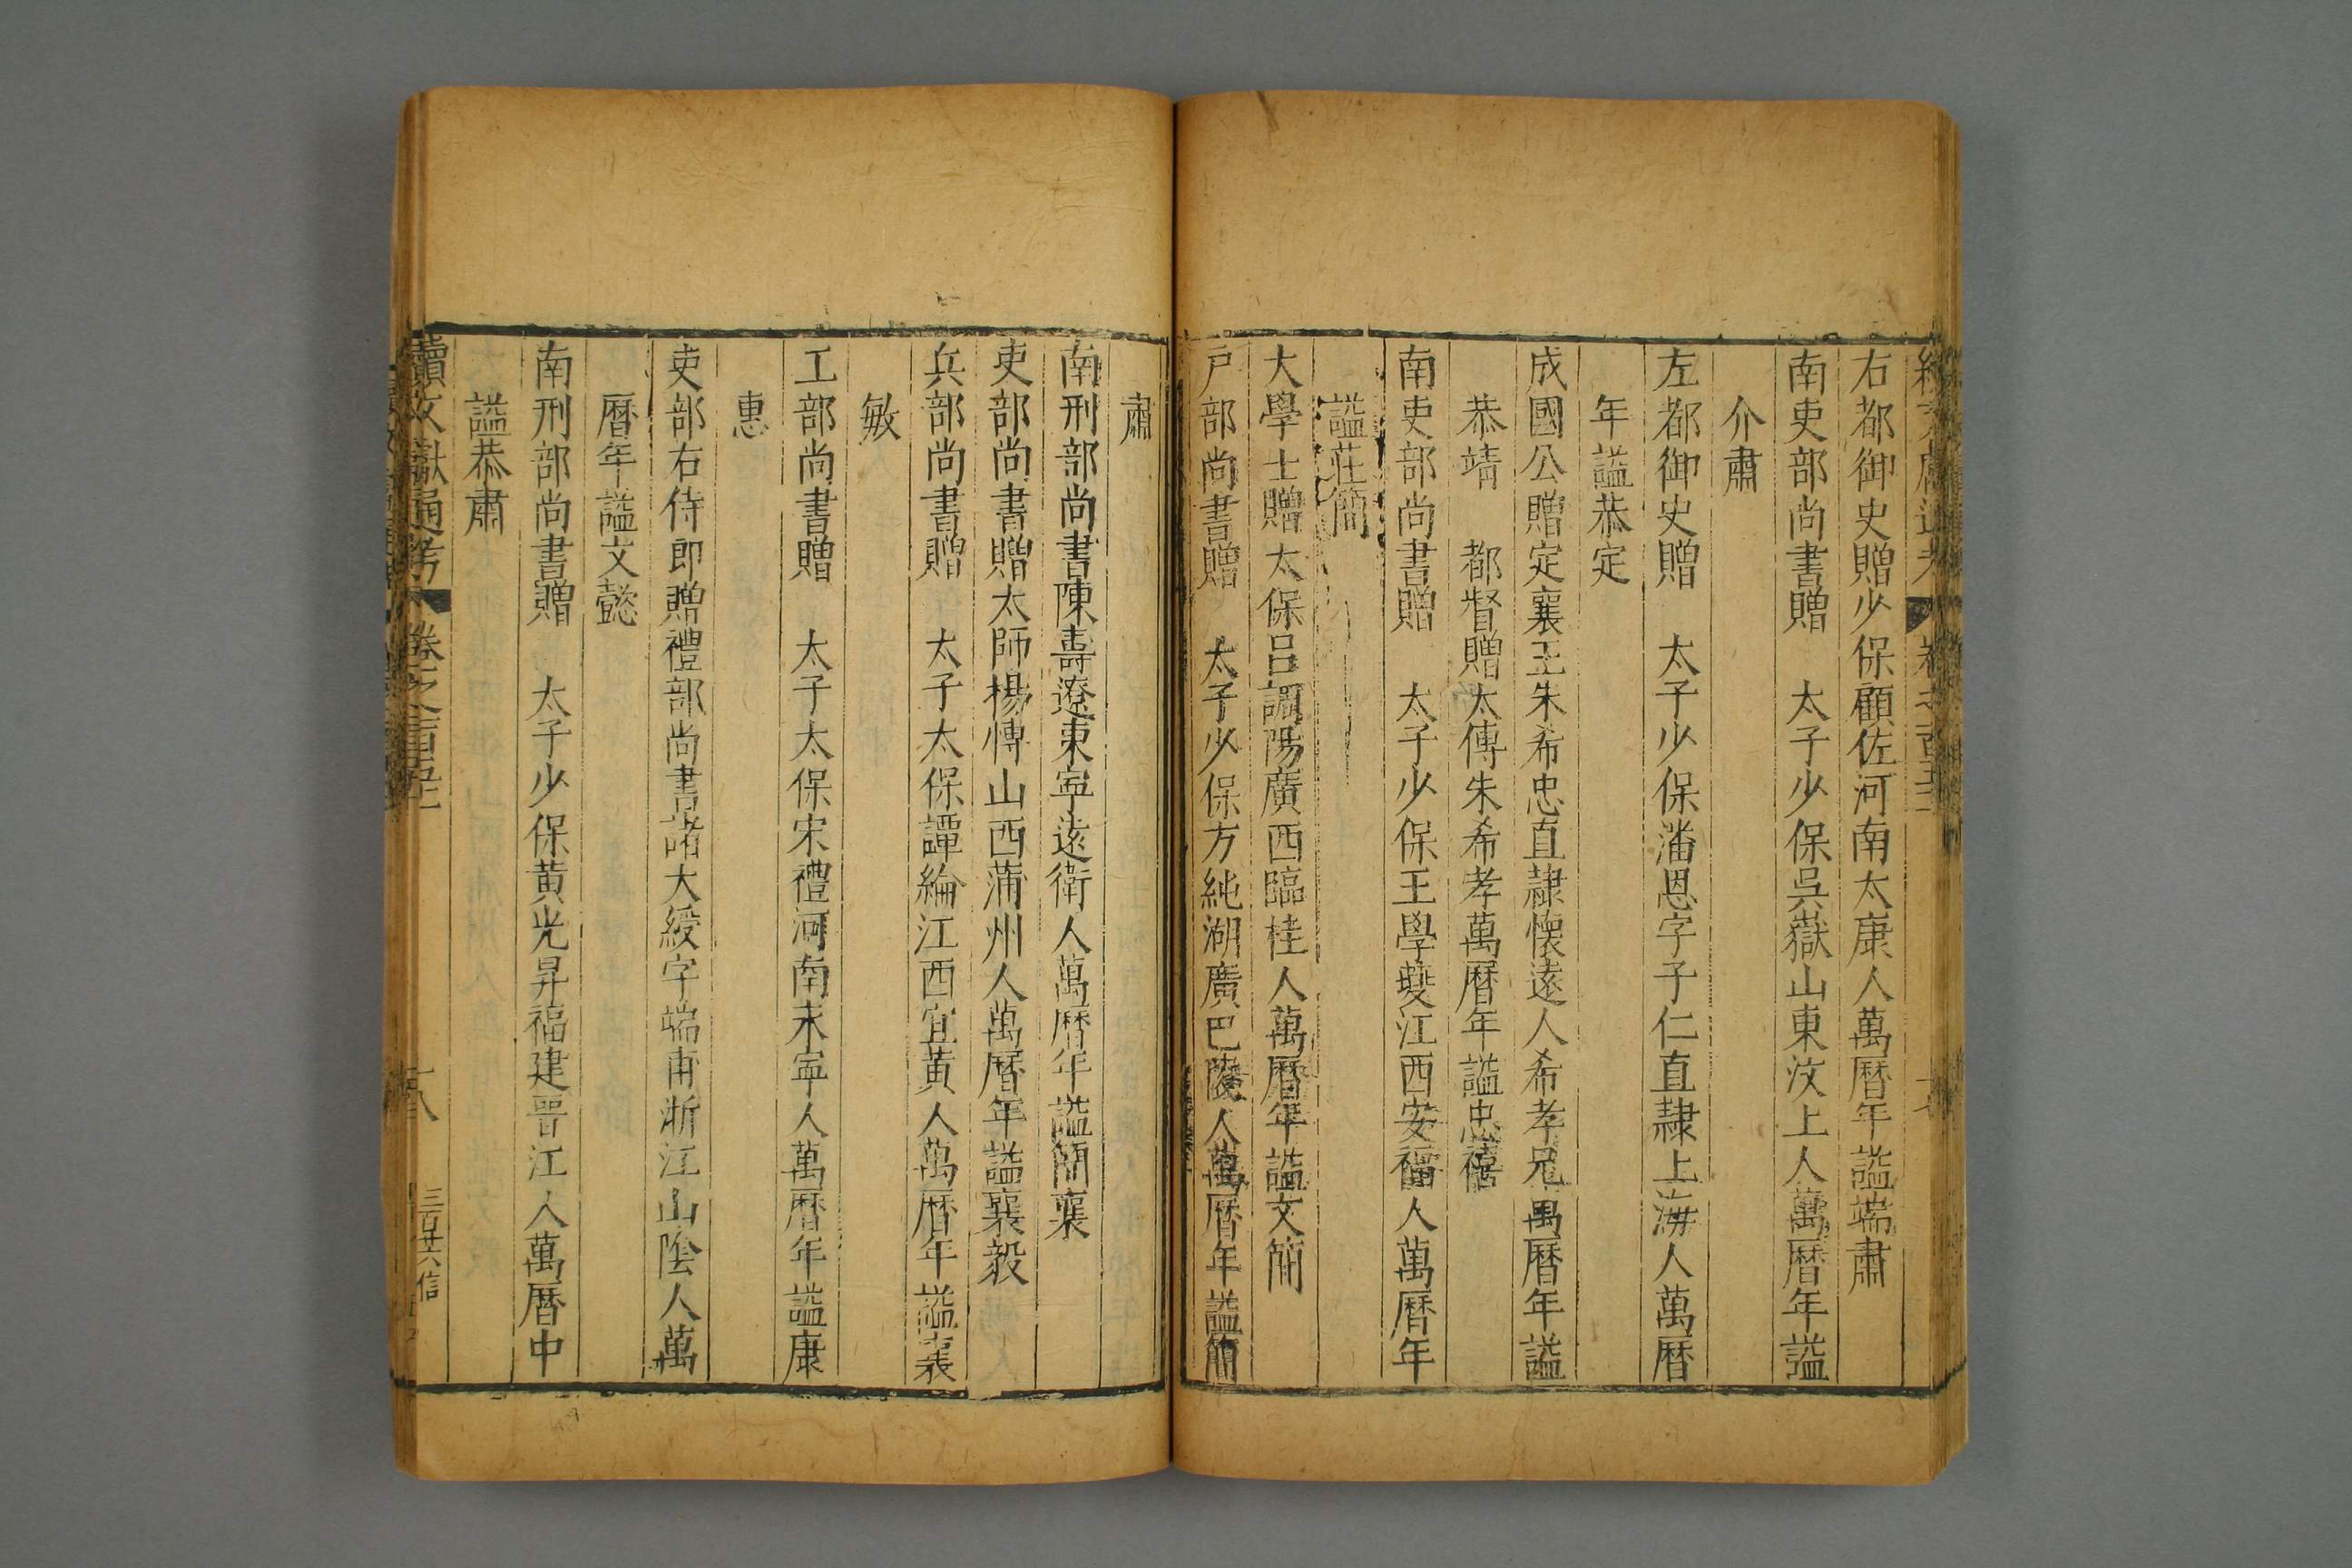 右都御史贈少保顧佐河南太康人萬曆年謚端肅
南吏部尚書贈　太子少保吳嶽山東汶上人萬曆年謚
介肅
左都御史贈　太子少保潘恩字子仁直隷上海人萬曆
年謚恭定
成國公贈定襄王朱希忠直隷懷遠人希孝兄萬曆年謚
恭靖　都督贈太傅朱希孝萬曆年謚忠僖
南吏部尚書贈　太子少保王學夔江西安福人萬曆年
謚莊簡
大學士贈太保呂調陽廣西臨桂人萬曆年謚文簡
戸部尚書贈　太子少保方純湖廣巴陵人萬曆年謚簡
肅
南刑部尚書陳壽遼東寧遠衛人萬曆年謚簡襄
吏部尚書贈太師楊愽山西蒲州人萬曆年謚襄毅
兵部尚書贈　太子太保譚綸江西宜黄人萬曆年謚襄
敏
工部尚書贈　太子太保宋禮河南永寧人萬曆年謚康
惠
吏部右侍郎贈禮部尚書諸大綬字端甫浙江山陰人萬
曆年謚文懿
南刑部尚書贈　太子少保黄光昇福建晋江人萬曆中
謚恭肅
續文獻通考　卷之一百五十二　十八　三百廿六　信